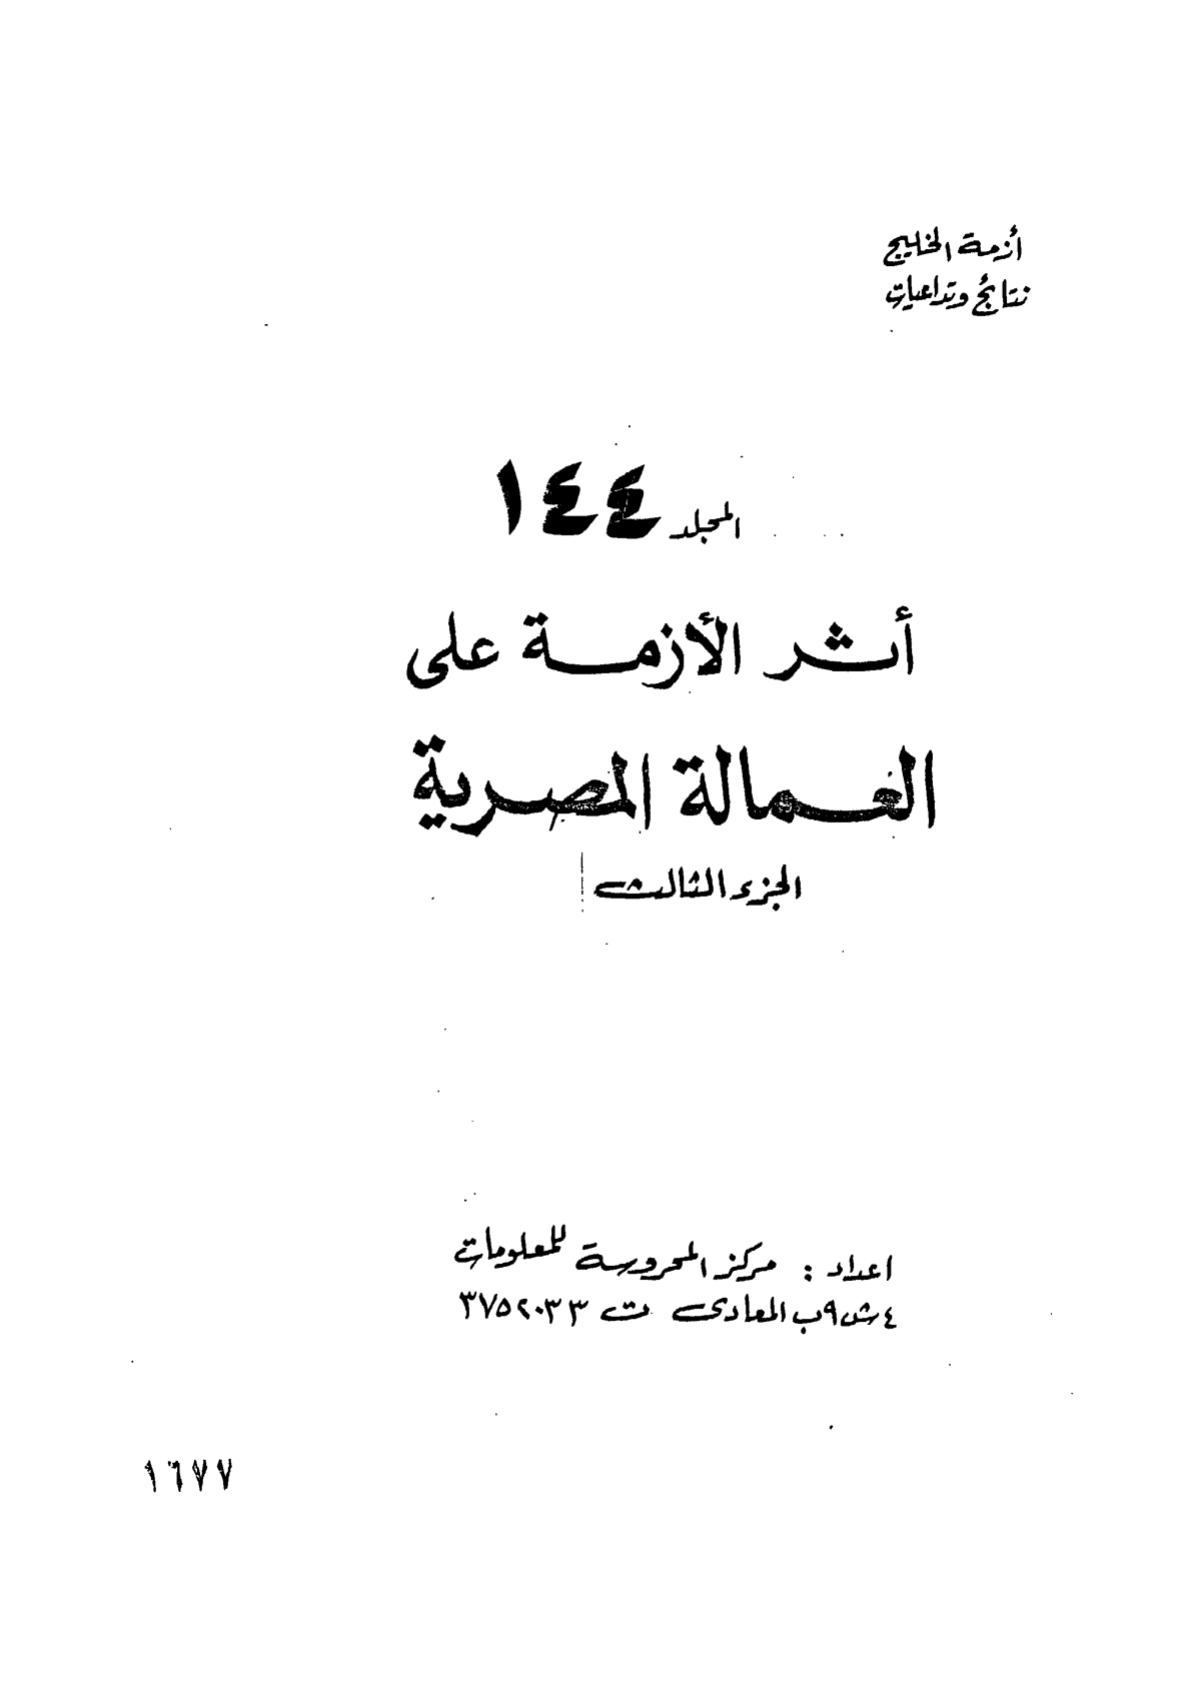 أزمة الخليج
نتائج وتداعيات
المجلد ١٤٤
أثر الأزمة على
العمالة المصرية
الجزء الثالث
اعداد : مركز المحروسة للمعلومات
٤ ش ٩ب المعادى ت ٣٧٥٢٠٣٣
١٦٧٧